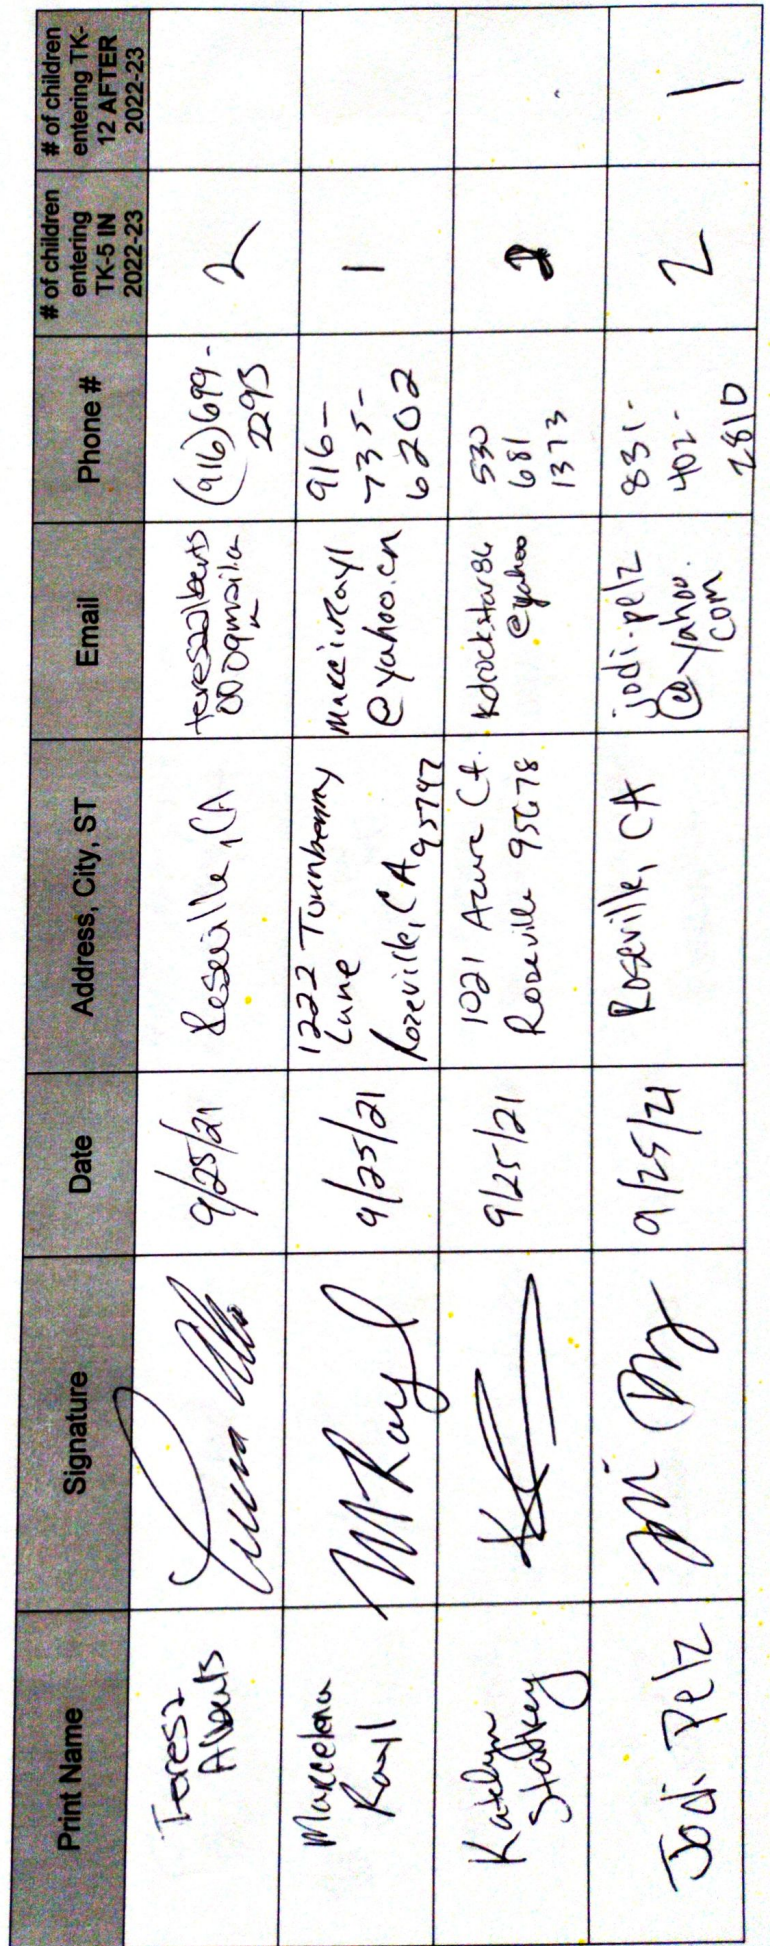 Print Name
Signature
Date
Address, City, ST
Email
Phone #
# of children
entering
TK-5 IN
2022-23
# of children
entering TK-
12 AFTER
2022-23
Teresa
Alberts
9/25/21
Roseville, CA
teresaalberts
(916)699-
2293
2
Marcelena
Rayl
M Rayl
9/25/21
1222
Lane
Roseville, CA 95747
@yahoo.cn
916-
735-
6202
1
Katelyn
9/25/21
1021 Azure Ct.
Roseville 95678
kdrockstar86
@yahoo
530
681
1373
2
Jodi Pelz
9/25/21
Roseville, CA
jodi.pelz
@yahoo.
com
831-
402-
2810
2
1